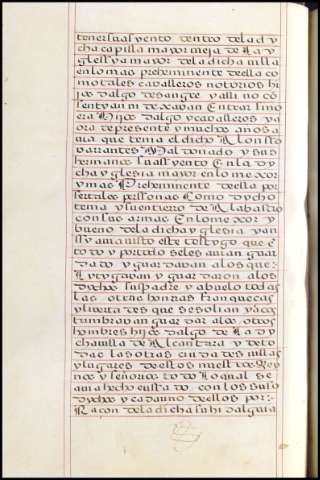 tener su asyento dentro de la dy
cha capilla mayor vieja de la y
glesya mayor de la dicha villa
en lo mas preheminente de ella co
mo tales cavalleros notorios hi
jos dalgo de sangre y alli no con
sentyan ni dexavan entrar sino
era hijos dalgo y cavalleros y a
ora de presente y muchos años a
via que tenia el dicho Alonsso
barrantes Maldonado y sus
hermanos su assyento en la dy
cha yglesia mayor en lo mexor
y mas preheminente della por
ser tales personas como dycho
tenia y su entierro de Alabastro
con sus armas en lo mexor y
bueno de la dicha yglesia y an
ssy avia visto este testygo que e
todo y por todo se les avian guar
dado y guardavan a los que
lytygavan y guardaron a los
dychos su padre y abuelo todas
las otras honras franquezas
y livertades que se solian y acos
tumbravan guardar a los otros
hombres hijos dalgo de la dy
cha villa de Alcantara y de to
das las otras ciudades villas
y lugares de estos nuestros Rey
nos y señorios todo lo qual se
avia hecho con los suso
dychos y cada uno dellos por
Raçon de la dicha su hidalguia